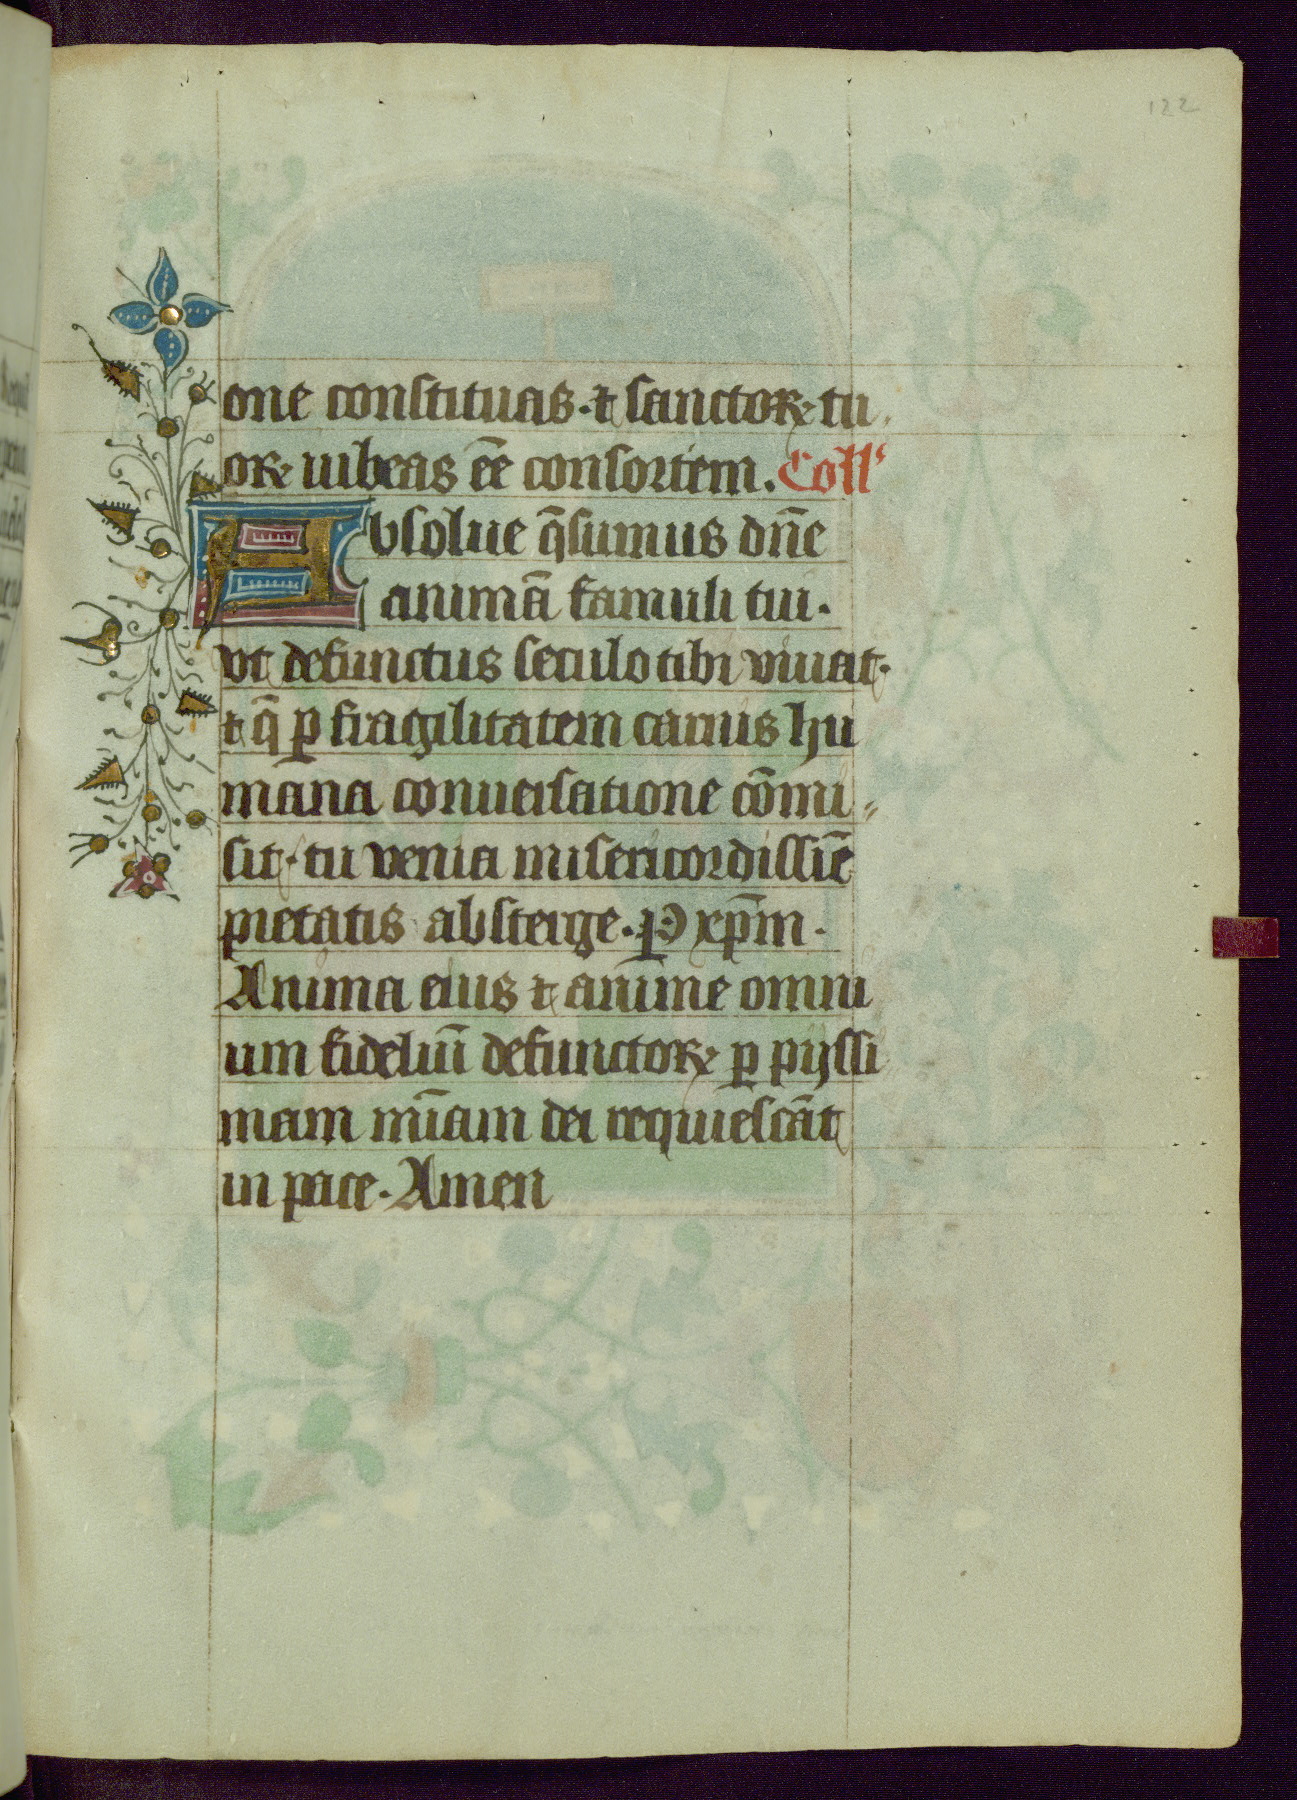 122
one constituas. ⁊ sanctoꝝ tu
oꝝ iubeas ēe consortem. Coll'
Absolue q̄sumus dn̄e
animā famuli tui.
vt defunctus seculo tibi viuat.
⁊ q̄ ꝑ fragilitatem carnis hu
mana conuersatione cōmi
sit. tu venia misericordissīe
pietatis absterge. P xp̄m.
Anima eius ⁊ anime omni
um fideliū defunctoꝝ ꝑ pijssi
mam mīam dei requiescāt
in pace. Amen